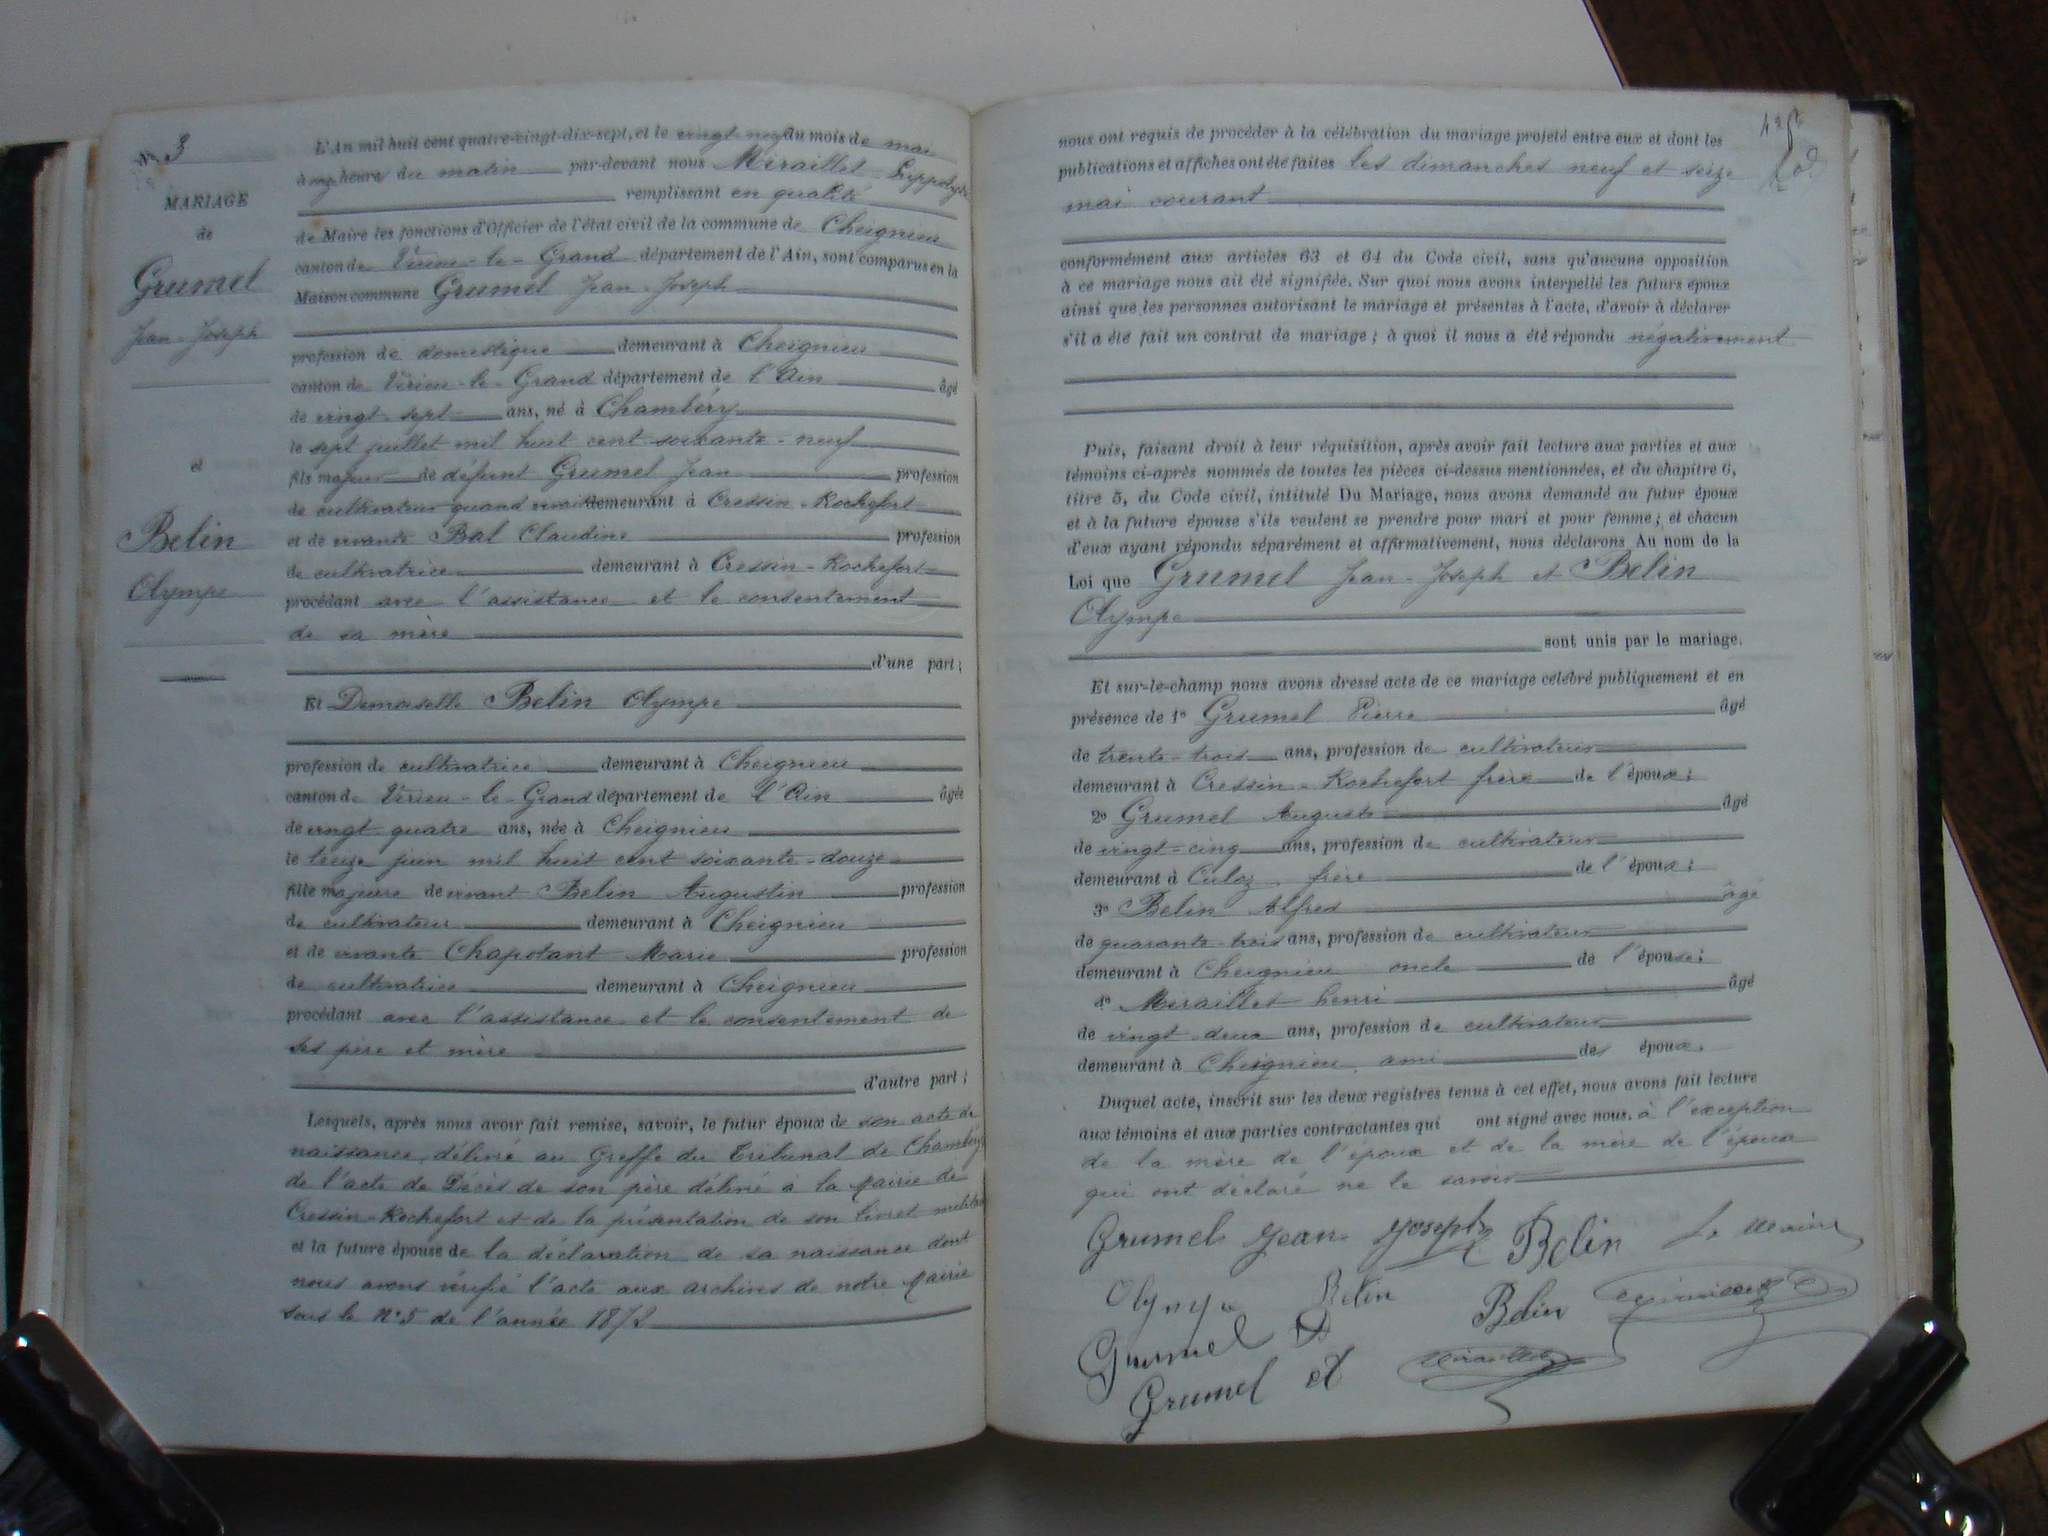 No 3
MARIAGE
de
Grumel
Jean-Joseph
et
Belin
Olympe
L'An mil huit cent quatre-vingt-dix-sept, et le vingt-neuf du mois de mai
à heures du matin par-devant nous Miraillet Hippolyte
remplissant en qualité
de Maire les fonctions d'Officier de l'état civil de la commune de Cheignieu
canton de Virieu-le-Grand département de l'Ain, sont comparus en la
Maison commune Grumel Jean-Joseph
profession de domestique demeurant à Cheignieu
canton de Virieu-le-Grand département de l'Ain âgé
de vingt-sept ans, né à Chambéry
le sept juillet mil huit cent soixante-neuf
fils majeur de défunt Grumel Jean profession
de cultivateur quand vivait demeurant à Cressin-Rochefort
et de vivante Bal Claudine profession
de cultivatrice demeurant à Cressin-Rochefort
procédant avec l'assistance et le consentement
de sa mère
d'une part;
Et Demoiselle Belin Olympe
profession de cultivatrice demeurant à Cheignieu
canton de Virieu-le-Grand département de l'Ain âgée
de vingt quatre ans, née à Cheignieu
le treize juin mil huit cent soixante-douze
fille majeure de vivant Belin Augustin profession
de cultivateur demeurant à Cheignieu
et de vivante Chapotant Marie profession
de cultivatrice demeurant à Cheignieu
procédant avec l'assistance et le consentement de
ses père et mère
d'autre part;
Lesquels, après nous avoir fait remise, savoir, le futur époux de son acte de
naissance délivré au Greffe du Tribunal de Chambéry
de l'acte de Décès de son père délivré à la Mairie de
Cressin-Rochefort et de la présentation de son livret militaire
et la future épouse de la déclaration de sa naissance dont
nous avons vérifié l'acte aux archives de notre Mairie
sous le N°5 de l'année 1872
nous ont requis de procéder à la célébration du mariage projeté entre eux et dont les
publications et affiches ont été faites les dimanches neuf et seize
mai courant
conformément aux articles 63 et 64 du Code civil, sans qu'aucune opposition
à ce mariage nous ait été signifiée. Sur quoi nous avons interpellé les futurs époux
ainsi que les personnes autorisant le mariage et présentes à l'acte, d'avoir à déclarer
s'il a été fait un contrat de mariage; à quoi il nous a été répondu négativement
Puis, faisant droit à leur réquisition, après avoir fait lecture aux parties et aux
témoins ci-après nommés de toutes les pièces ci-dessus mentionnées, et du chapitre 6,
titre 5, du Code civil, intitulé Du Mariage, nous avons demandé au futur époux
et à la future épouse s'ils veulent se prendre pour mari et pour femme; et chacun
d'eux ayant répondu séparément et affirmativement, nous déclarons Au nom de la
Loi que Grumel Jean-Joseph et Belin
Olympe
sont unis par le mariage.
Et sur-le-champ nous avons dressé acte de ce mariage célébré publiquement et en
présence de 1° Grumel Pierre âgé
de trente-trois ans, profession de cultivateur
demeurant à Cressin-Rochefort frère de l'époux;
2° Grumel Auguste âgé
de vingt-cinq ans, profession de cultivateur
demeurant à Culoz, frère de l'époux;
3° Belin Alfred âgé
de quarante-trois ans, profession de cultivateur
demeurant à Cheignieu oncle de l'épouse;
4° Miraillet henri âgé
de vingt-deux ans, profession de cultivateur
demeurant à Cheignieu ami des époux.
Duquel acte, inscrit sur les deux registres tenus à cet effet, nous avons fait lecture
aux témoins et aux parties contractantes qui ont signé avec nous. à l'exception
de la mère de l'époux et de la mère de l'épouse
qui ont déclaré ne le savoir
Grumel Jean Joseph Belin Le Maire
Olympe Belin Belin Miraillet
Grumel
Grumel Miraillet